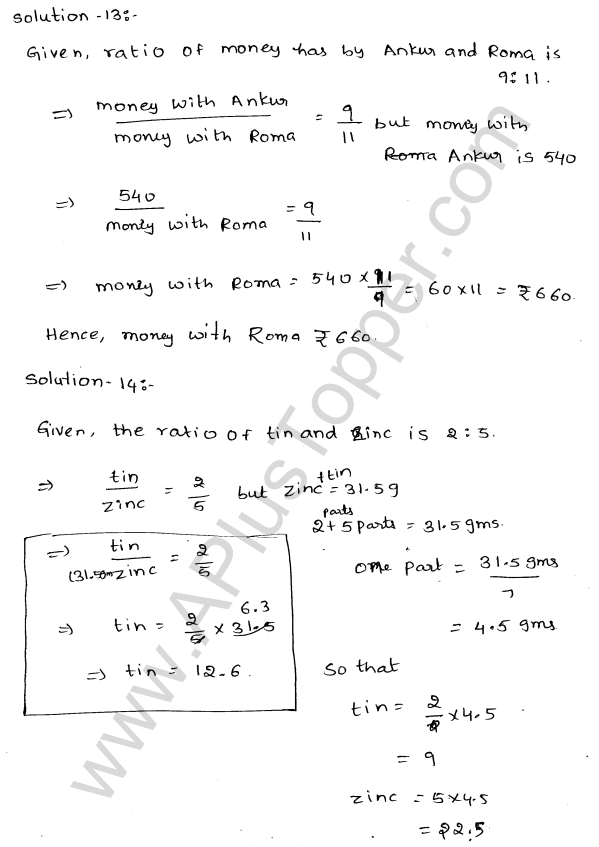 Solution-13:-
Given, ratio of money has by Ankur and Roma is
9:11.
=> money with Ankur / money with Roma = 9/11 but money with
Roma Ankur is 540
=> 540 / money with Roma = 9/11
=> money with Roma = 540 × 11/9 = 60×11 = ₹660.
Hence, money with Roma ₹660.
Solution-14:-
Given, the ratio of tin and zinc is 2:5.
=> tin/zinc = 2/5 but zinc+tin = 31.5g
2+5 parts parts = 31.5 gms.
=> tin / zinc = 2/5
one part = 31.5 gms / 7
=> tin = 2/5 × 31.5 6.3
= 4.5 gms
=> tin = 12.6.
So that
tin = 2 × 4.5
= 9
zinc = 5×4.5
= 22.5
www.APlusTopper.com